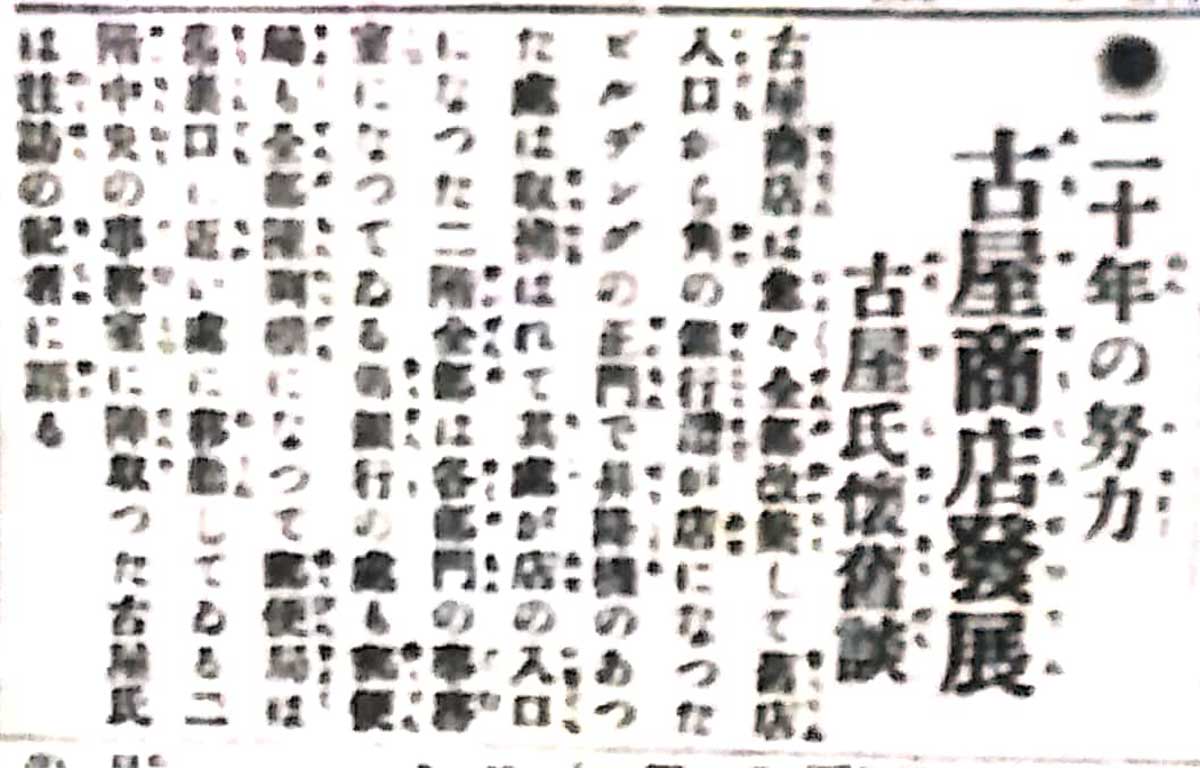 ●二十年の努力
古屋商店發展
古屋氏懐舊談
古屋商店は愈々全部改築して新店
入口から角の銀行迄が店になつた
ビルデングの正門で昇降機のあつ
た處は取拂はれて其處が店の入口
になつた二階全部は各部門の事務
室になつてゐる 銀行の處も郵便
局も全部 になつて郵便局は
裏口に近い處に移動してゐる二
階中央の事務室に陣取つた古屋氏
は往訪の記者に語る